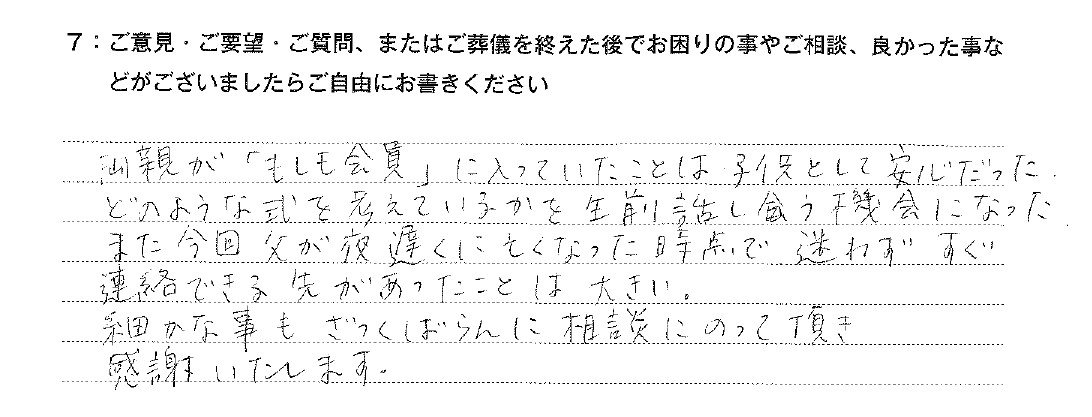 7：ご意見・ご要望・ご質問、またはご葬儀を終えた後でお困りの事やご相談、良かった事な
どがございましたらご自由にお書きください
両親が「もしも会員」に入っていたことは子供として安心だった.
どのような式を考えているかを生前話し合う機会になった
また今回父が夜遅くに亡くなった時点で迷わずすぐ
連絡できる先があったことは大きい。
細かな事もざっくばらんに相談にのって頂き
感謝いたします.